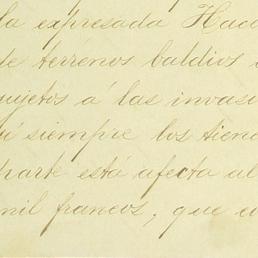 la expresada Hac
de terrenos baldios
sujetos á las invasi
siempre los tiene
parte está afecta al
mil francos, que